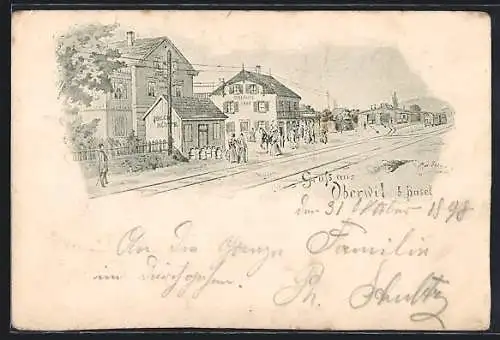 Gruss aus
Oberwil b. Basel
den 31 Oktober 1898
An die ganze Familie
im Durchgehen.
Ph. Schultz